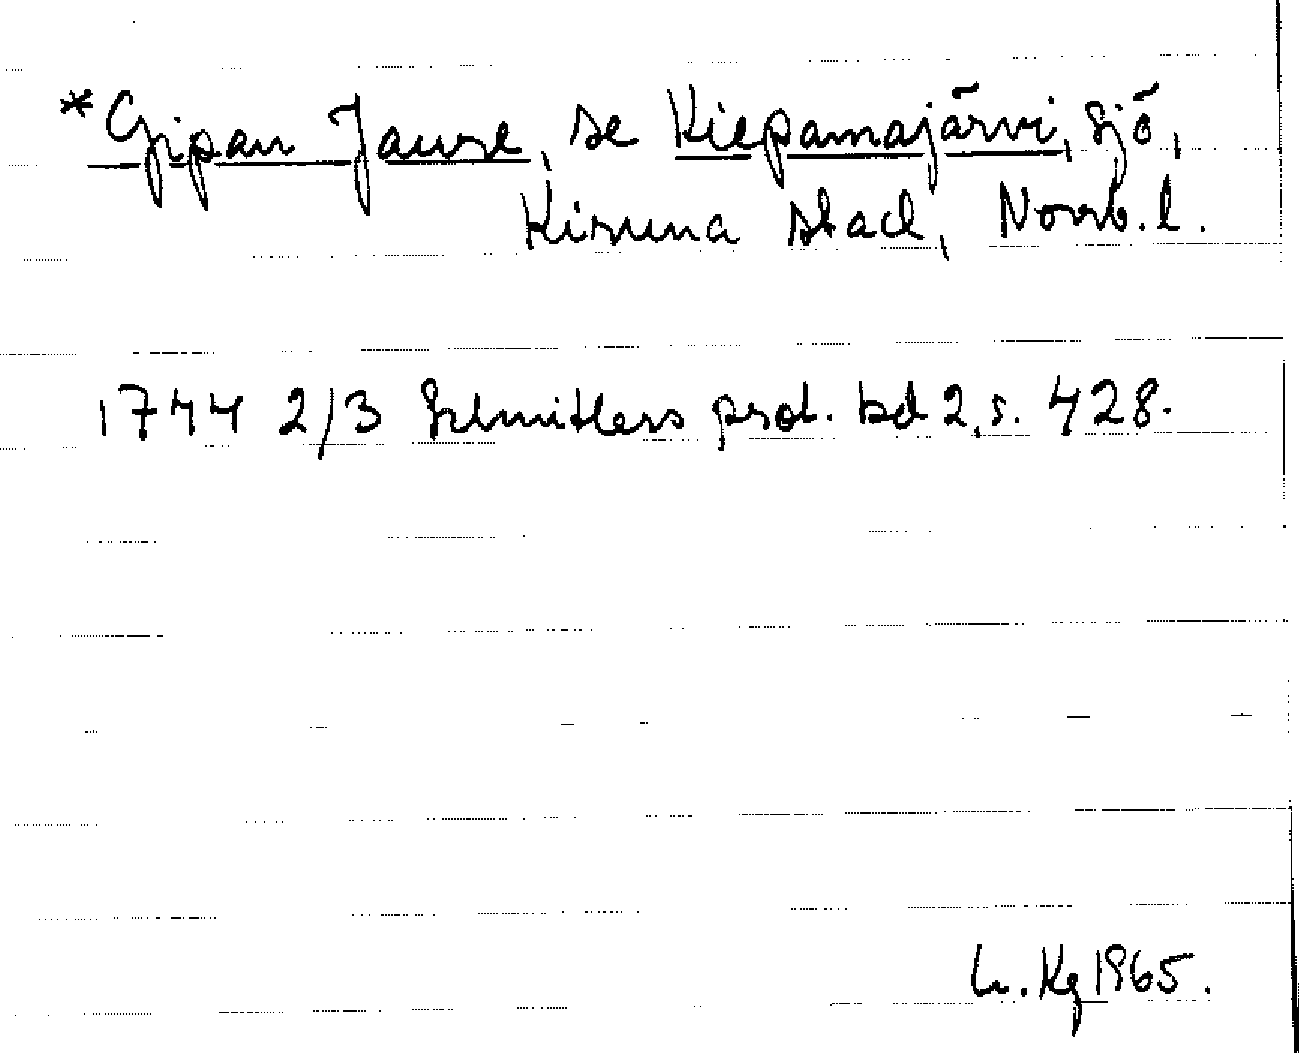 *Gipan Jaure, se Kiepamajärvi, sjö,
Kiruna stad, Norrb. l.
1744 2/3 Schnitlers prot. bd 2, s. 428.
L. Kg 1965.